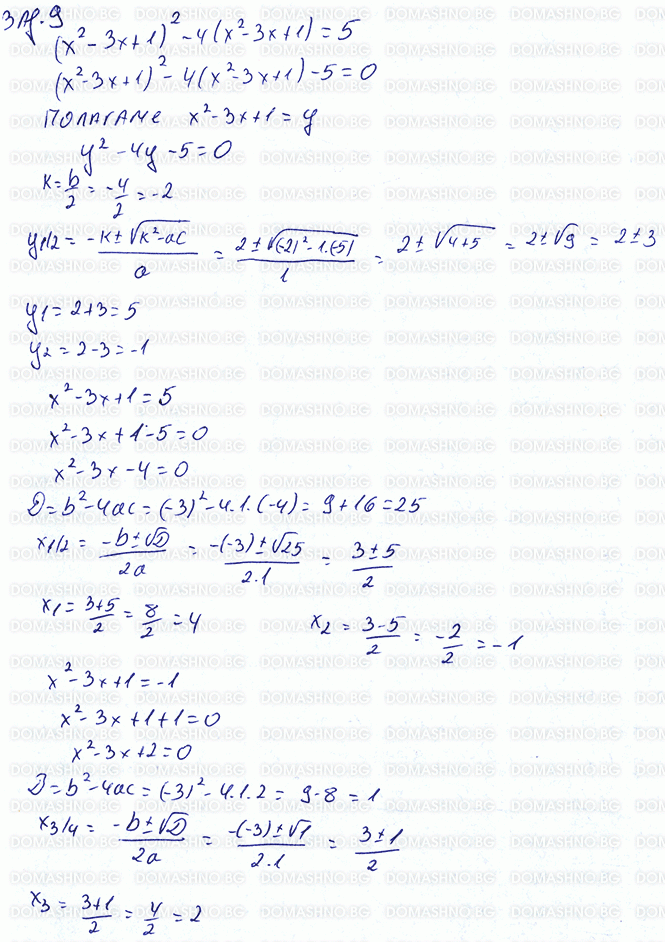 Зад. 9
(x² - 3x + 1)² - 4(x² - 3x + 1) = 5
(x² - 3x + 1)² - 4(x² - 3x + 1) - 5 = 0
Полагаме x² - 3x + 1 = y
y² - 4y - 5 = 0
k = b/2 = -4/2 = -2
y1/2 = (-k ± √(k² - ac))/a = (2 ± √((-2)² - 1.(-5)))/1 = 2 ± √(4+5) = 2 ± √9 = 2 ± 3
y1 = 2+3 = 5
y2 = 2-3 = -1
x² - 3x + 1 = 5
x² - 3x + 1 - 5 = 0
x² - 3x - 4 = 0
D = b² - 4ac = (-3)² - 4.1.(-4) = 9 + 16 = 25
x1/2 = (-b ± √D)/2a = (-(-3) ± √25)/2.1 = (3 ± 5)/2
x1 = (3+5)/2 = 8/2 = 4 x2 = (3-5)/2 = -2/2 = -1
x² - 3x + 1 = -1
x² - 3x + 1 + 1 = 0
x² - 3x + 2 = 0
D = b² - 4ac = (-3)² - 4.1.2 = 9 - 8 = 1
x3/4 = (-b ± √D)/2a = (-(-3) ± √1)/2.1 = (3 ± 1)/2
x3 = (3+1)/2 = 4/2 = 2
DOMASHNO.BG